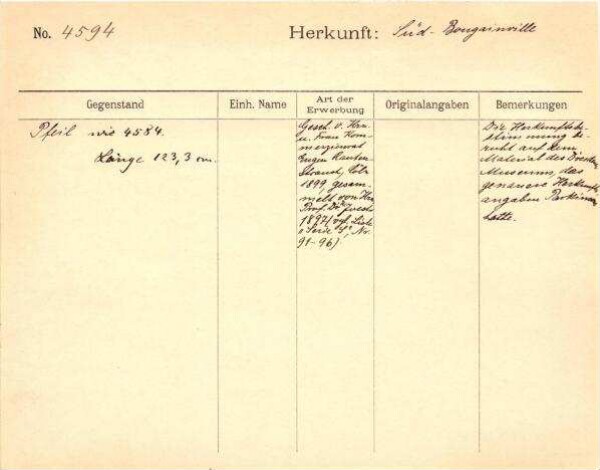 No. 4594 Herkunft: Süd-Bougainville
Gegenstand Einh. Name Art der Erwerbung Originalangaben Bemerkungen
Pfeil wie 4584.
Länge 123,3 cm.
Gesch. v. Hrn
u. Frau Kom-
merzienrat
Eugen Rauten-
strauch, Cöln
1899, gesam-
melt von Hrn
Prof. Dr. Joest
1897 (vgl. Liste
Serie Nr.
91-96)
Die Herkunftsbe-
stimmung be-
ruht auf dem
Material des Dresdn.
Museums, das
genauere Herkunfts-
angaben Parkinson
hatte.